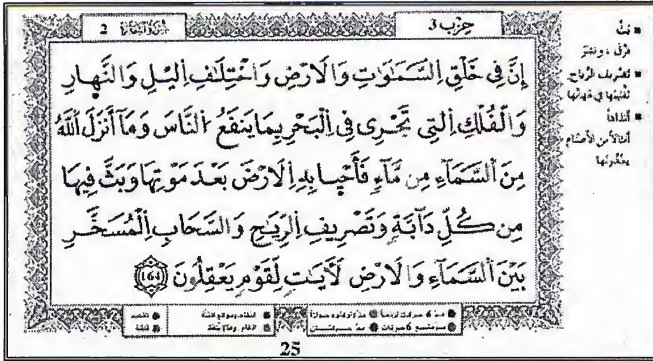 حِزْب 3
سُورَةُ البَقَرَة 2
إِنَّ فِي خَلْقِ اِ۬لسَّمَٰوَٰتِ وَالَارْضِ وَاخْتِلَٰفِ اِ۬ليْلِ وَالنَّهارِ
وَالْفُلْكِ اِ۬لتِي تَجْرِي فِي اِ۬لْبَحْرِ بِمَا يَنفَعُ اُ۬لنَّاسَ وَمَآ أَنزَلَ اَ۬للَّهُ
مِنَ اَ۬لسَّمَآءِ مِن مَّآءٖ فَأَحْيا بِهِ اِ۬لَارْضَ بَعْدَ مَوْتِهَا وَبَثَّ فِيهَا
مِن كُلِّ دَآبَّةٖ وَتَصْرِيفِ اِ۬لرِّيَٰحِ وَالسَّحَابِ اِ۬لْمُسَخَّرِ
بَيْنَ اَ۬لسَّمَآءِ وَالَارْضِ لَأٓيَٰتٖ لِّقَوْمٖ يَعْقِلُونَ 164
بَثَّ
فرّق ، ونشر
تصْرِيف الرّيَاح
تقليبها في مهابّها
أنداداً
أمثالاً من الأصنام
يعبدونها
25